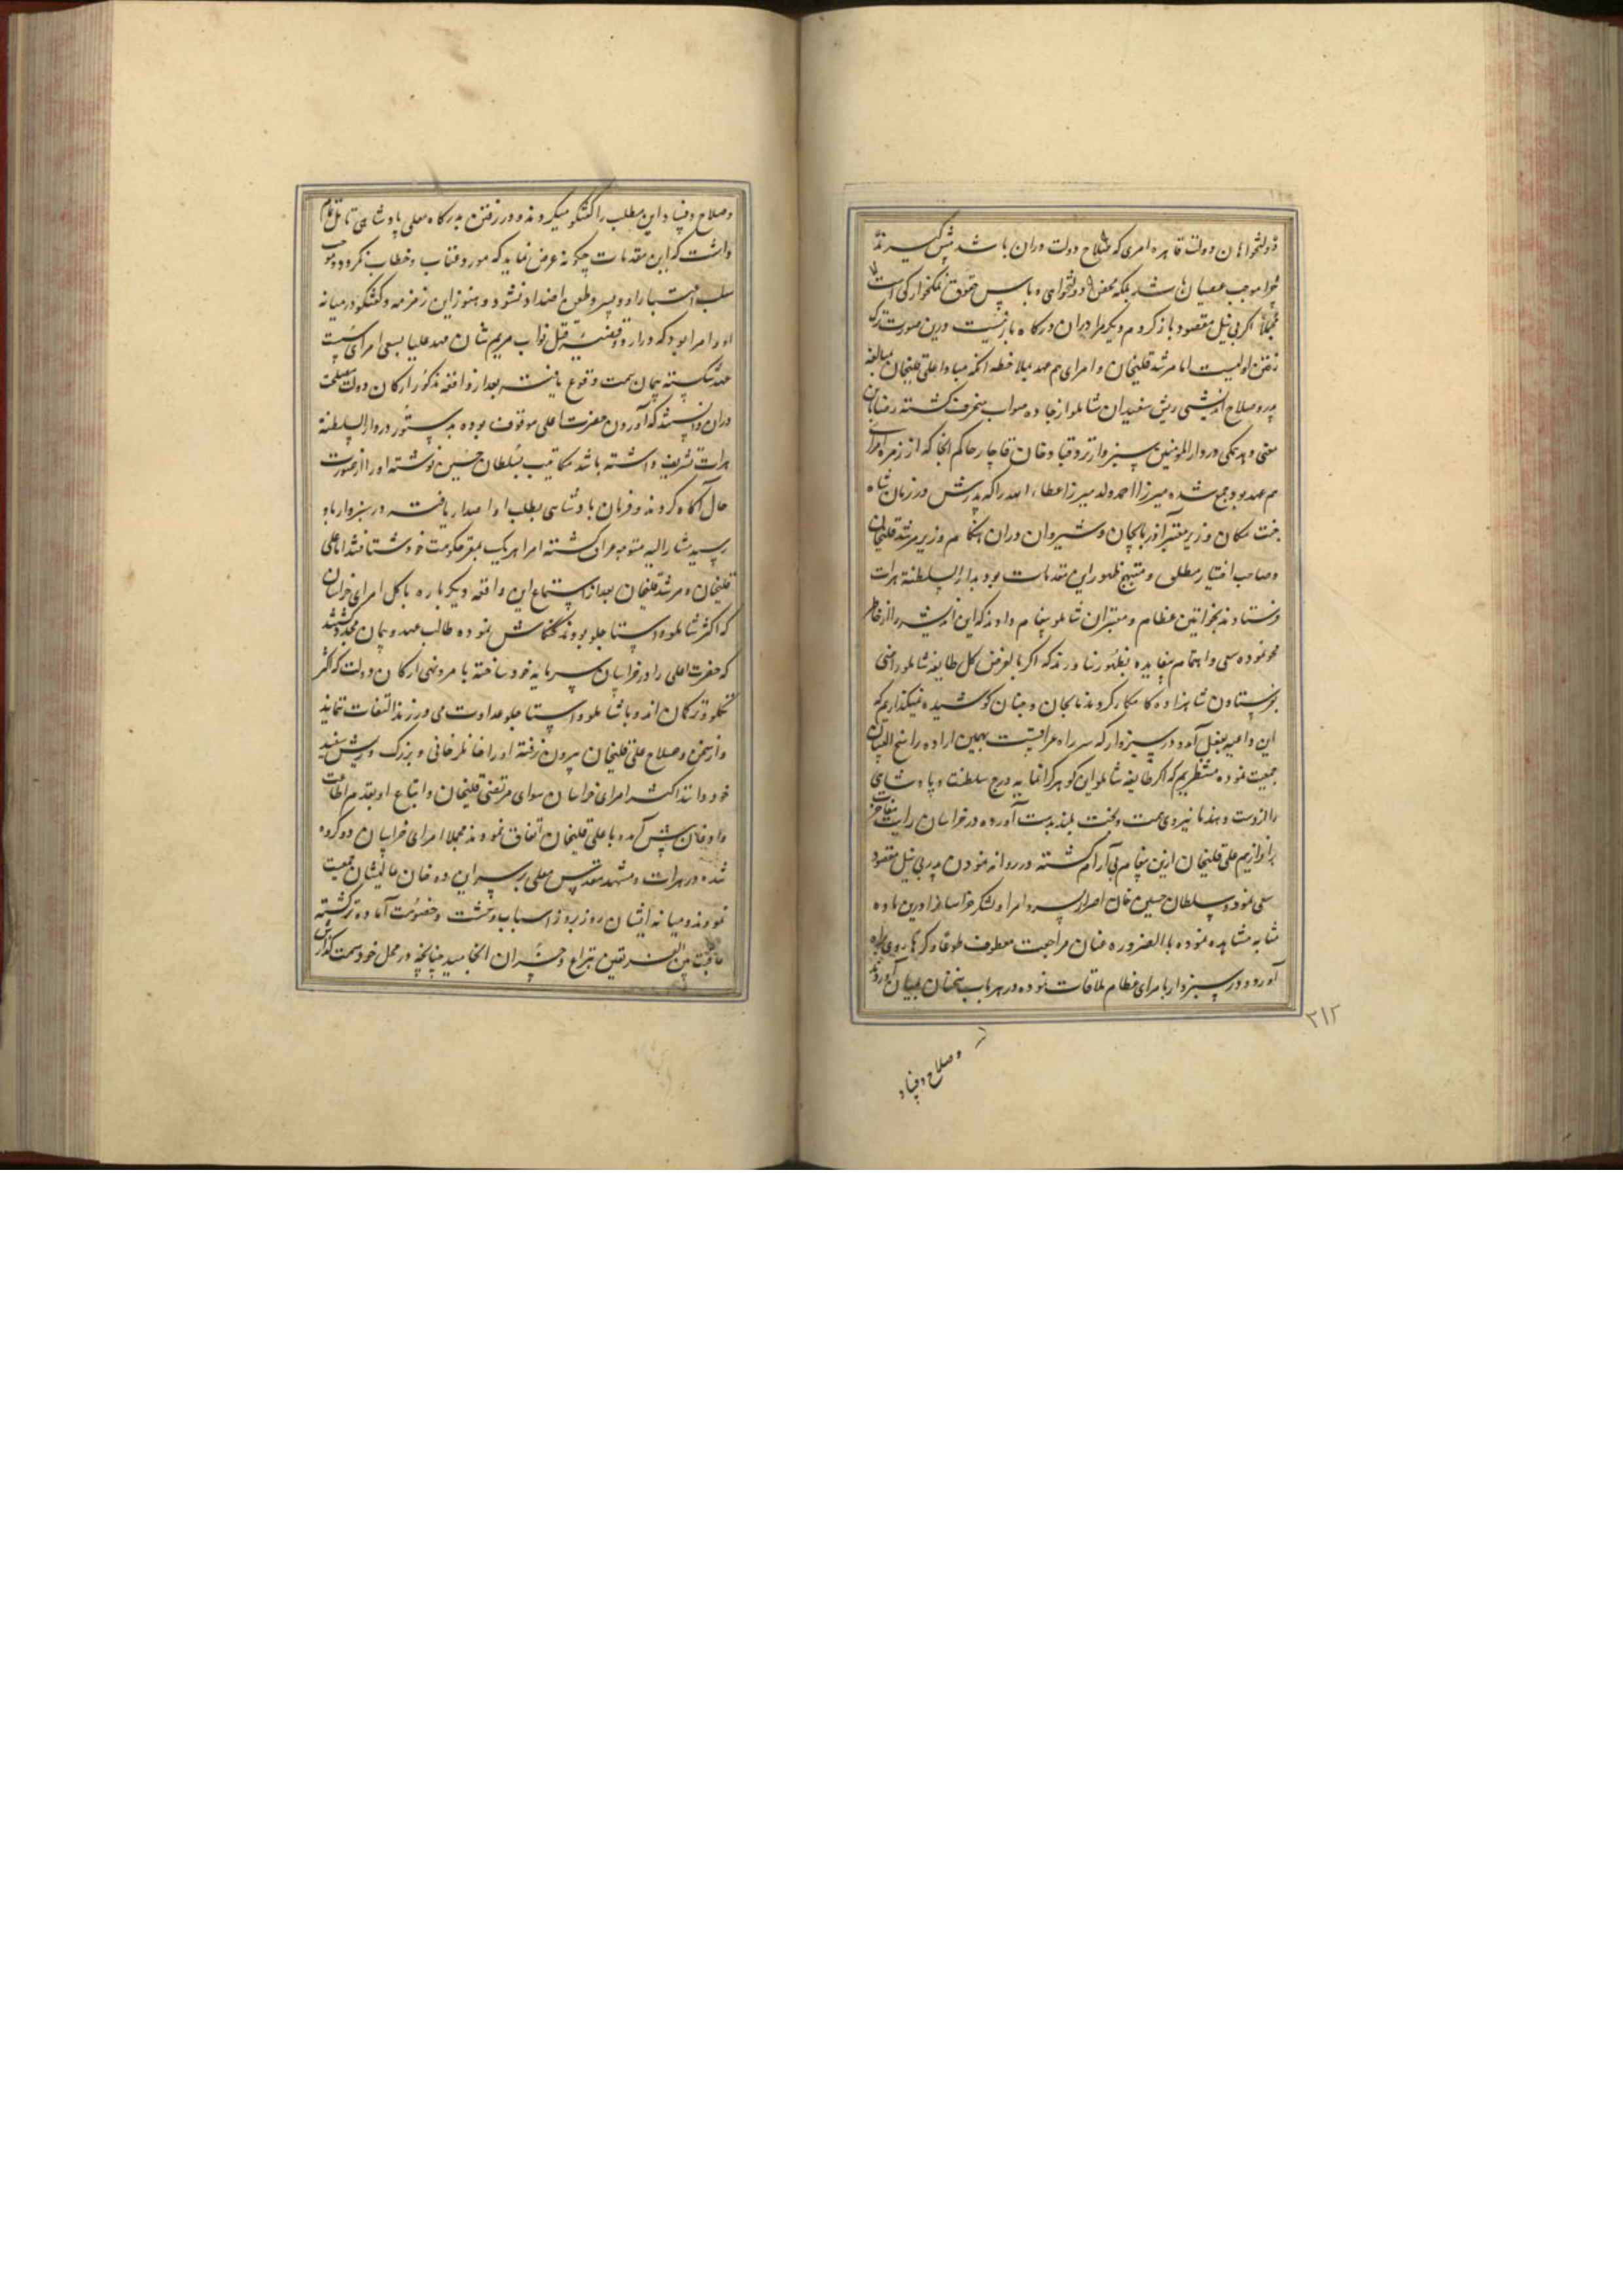 دولتخواهان دولت قاهره امری که صلاح دولت دران باشد پیش گیرند
چرا موجب عصیان باشد بلکه محض دولتخواهی و پاس حقوق نمکخوارکی است
مجملا اکر بی نیل مقصود باز کردم دیکر مرا در ایران و درکاه بار نیست درین صورت ترک
رفتن اولیست اما مرشد قلیخان و امرای هم عهد بملاحظه آنکه مبادا علی قلیخان بمبالغه
پدر و صلاح اندیشی ریش سفیدان شاملو از جاده صواب منحرف کشته رضا بآن
معنی دهد همکی در دار المومنین سبزوار نزد قباد خان قاجار حاکم آنجا که از زمره امرای
هم عهد بود جمع شده میرزا احمد ولد میرزا عطاء الله را که پدرش در زمان شاه
جنت مکان وزیر معتبر آذربایجان و شیروان و دران هنکام وزیر مرشد قلیخان
و صاحب اختیار مطلق و منهج ظهور این مقدمات بود بدار السلطنة هرات
فرستادند بخواتین عظام و معتبران شاملو پیغام دادند که این اندیشه را از خاطر
محو نموده سعی و اهتمام بیفایده بظهور نیاورند که اکر بالفرض کل طایفه شاملو راضی
بفرستادن شاهزاده کامکار کردند ما بجان و جنان کوشیده نمیکذاریم که
این داعیه بفعل آید و در سبزوار که سر راه عراقست بهمین اراده راسخ البنیان
جمعیت نموده منتظریم که اکر طایفه شاملو این کوهر کرانمایه درج سلطنت و پادشاهی
را از دست دهند ما بنیروی همت و بخت بلند بدست آورده در خراسان رایت مفاخرت
برافرازیم علی قلیخان ازین پیغام بی آرام کشته در روانه نمودن پدر بی نیل مقصود
سعی نمود و سلطان حسین خان اصرار پسر و امرا و لشکر خراسانرا درین ماده
مشابه مشاهده نموده بالضروره عنان مراجعت معطوف طوعا و کرها روی براه
آورد و در سبزوار با امرای عظام ملاقات نموده در هر باب سخنان بمیان آوردند
۳۱۲
وصلاح و فساد
وصلاح و فساد این مطلب را کفتکو میکردند و در رفتن بدرکاه معلی پادشاهی تامل تمام
داشت که این مقدمات چکونه عرض نماید که مورد عتاب و خطاب نکردد و موجب
سلب اعتبار او و پسر و طعن اضداد نشود و هنوز این زمزمه و کفتکو در میانه
او و امرا بود که در اردو قضیه قتل نواب مریم شان مهد علیا بسعی امرای سست
عهد شکسته پیمان سمت وقوع یافت بعد از واقعه مذکور ارکان دولت مصلحت
دران دانستند که آوردن حضرت اعلی موقوف بوده بدستور در دار السلطنة
هرات تشریف داشته باشد مکاتیب بسلطان حسین نوشته او را از صورت
حال آکاه کردند و فرمان پادشاهی بطلب او اصدار یافت در سبزوار باو
رسید مشار الیه متوجه عراق کشته امرا هر یک بمقر حکومت خود شتافتند اما علی
قلیخان و مرشد قلیخان بعد از استماع این واقعه دیکر باره با کل امرای خراسان
که اکثر شاملو و استاجلو بودند کنکاش نموده طالب عهد و پیمان مجدد شدند
که حضرت اعلی را در خراسان سرمایه خود ساخته با امر و نهی ارکان دولت که اکثر
تکلو و ترکمان اند و با شاملو و استاجلو عداوت می ورزند التفات ننمایند
و از سخن و صلاح علی قلیخان بیرون نرفته او را خانلر خانی و بزرک و ریش سفید
خود دانند اکثر امرای خراسان سوای مرتضی قلیخان و اتباع او بقدم اطاعت
و اذعان پیش آمده با علی قلیخان اتفاق نمودند مجملا امرای خراسان دو کروه
شده در هرات و مشهد مقدس معلی بر سر این دو خان عالیشان جمعیت
نمودند و میانه ایشان روز بروز اسباب وحشت و خصومت آماده تر کشته
عاقبت بین الفریقین بنزاع و خسران انجامید چنانچه در محل خود سمت کذارش